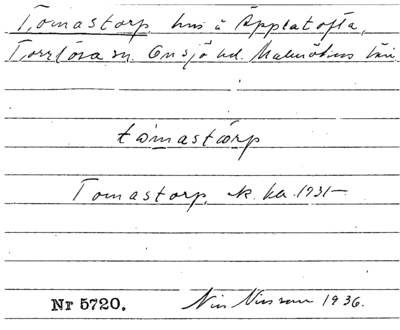 Tomastorp, hus i Äpplatofta,
Torrlösa sn. Onsjö hd. Malmöhus län.
tomastårp
Tomastorp. ek. ka. 1931–
Nr 5720.
Nils Nilsson 1936.